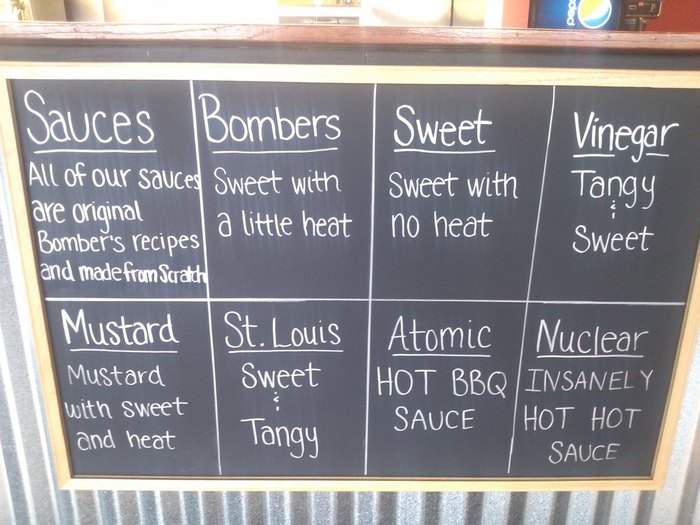 pepsi
Sauces
All of our sauces
are original
Bomber's recipes
and made from Scratch
Bombers
Sweet with
a little heat
Sweet
Sweet with
no heat
Vinegar
Tangy
&
Sweet
Mustard
Mustard
with sweet
and heat
St. Louis
Sweet
&
Tangy
Atomic
HOT BBQ
SAUCE
Nuclear
INSANELY
HOT HOT
SAUCE